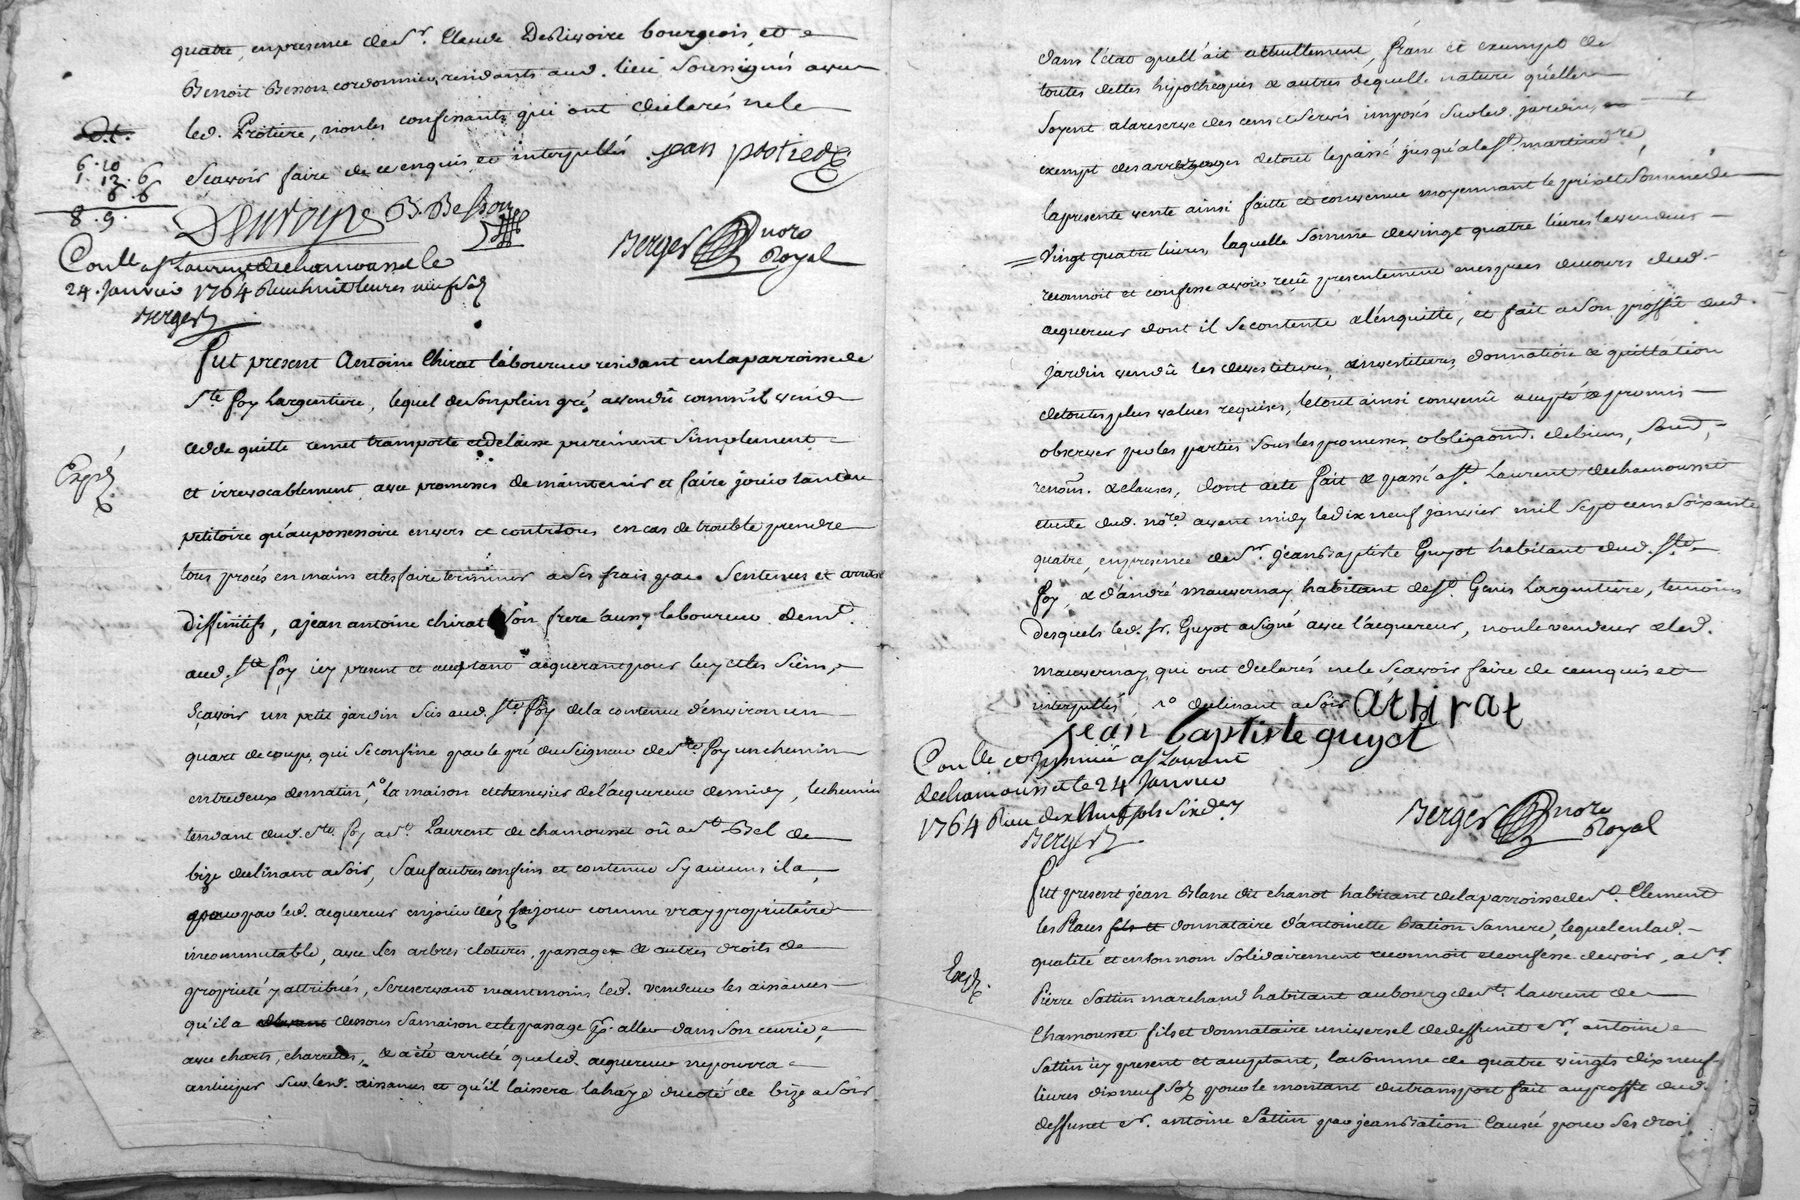 quatre, en presence de Sr. Claude Desuivoire bourgeois, et
Benoit Besson cordonnier, residants aud. lieu soussignés avec
led. Protiere, non les confessants qui ont declarés ne le
scavoir faire de ce enquis et interpellés. jean protiere
6. 10
1. 12. 6
6. 6
8. 9.
B. Besson
Berger nore
Royal
Conllé a St Laurent de chamousset le
24. Janvier 1764 Reçu huit livres neuf sols
Berger
fut present Antoine Chirat laboureur residant en la parroisse de
Ste foy Largentiere, lequel de son plein gré, a vendû comme il vend
cedde quitte remet transporte et délaisse purement simplement
Expé.
et irrevocablement avec promesses de maintenir et faire jouir tant au
petitoire qu'au possessoire envers et contre tous en cas de trouble prendre
tous procés en main et les faire terminer a ses frais par sentences et arrets
diffinitifs, a jean antoine chirat son frere aussy laboureur demt.
aud. Ste foy icy present et acceptant acquerant pour luy et les siens,
Sçavoir un petit jardin sis aud. Ste foy de la contenue d'environ un
quart de coupe, qui se confine par le pré du Seigneur de Ste foy un chemin
entredeux de matin, la maison et chenevier de l'acquereur de midy, le chemin
tendant dud. Ste foy a St. Laurent de chamousset où a St. Bel de
bize declinant a soir, sauf autres confins et contenue sy aucuns il a,
pour par led. acquereur en jouir déz ce jour comme vray proprietaire
incommutable, avec ses arbres clotures, passages & autres droits de
proprieté y attribués, se reservant neantmoins led. vendeur les aisances
qu'il a dessous sa maison et le passage pr. aller dans son écurie,
avec charts, charrettes, & a été arretté que led. acquereur ne pourra
anticiper sur lesd. aisances et qu'il laissera la haÿe du coté de bize a soir
dans l'état quell'ait actuellement, franc et exempt de
toutes dettes hypotheques & autres de quelle nature qu'elles
soyent a la reserve des cens et servis imposés sur led. jardin,
exempt des arrerages de tout le passé jusqu'a la St. martin dre,
la presente vente ainsi faitte et convenue moyennant le prix et somme de
Vingt quatre livres, laquelle somme de vingt quatre livres le vendeur
reconnoit et confesse avoir reçû presentement en especes de cours dud.
acquereur dont il se contente & l'enquitte, et fait a son proffit dud.
jardin vendû les devestitures, investitures, donnation & quittation
de toutes plus values requises, le tout ainsi convenû accepté & promis
observer par les parties sous les promesses, obligaons. de biens, soumd.,
renons. & clauses, dont acte fait & passé a St. Laurent de chamousset
etude dud. nore. avant midy le dix neuf janvier mil sept cens soixante
quatre, en presence de Sr. jean Baptiste Guyot habitant dud. Ste
foy, & d'andré mauvernay habitant de St. Genis Largentiere, temoins
desquels led. Sr. Guyot a signé avec l'acquereur, non le vendeur & led.
mauvernay, qui ont declarés ne le scavoir faire de ce enquis et
interpellés. declinant a soir A chirat
jean baptiste guyot
Conllé et Insinué a St Laurent
de chamousset le 24 Janvier
1764 Reçu dix huit sols six drs
Berger
Berger nore
Royal
fut present jean Blanc dit chanot habitant de la parroisse de St. Clement
les Places donnataire d'antoinette Bration sa mere, lequel en lad.
qualité et en son nom solidairement reconnoit et confesse devoir, a Sr.
Expé.
Pierre Sattin marchand habitant au bourg de St. Laurent de
Chamousset fils et donnataire universel de deffunct Sr. antoine
Sattin icy present et acceptant, la somme de quatre vingts dix neuf
livres dix neuf sols pour le montant du transport fait au proffit dud.
deffunct Sr. antoine Sattin par jean Bration Causé pour ses droits